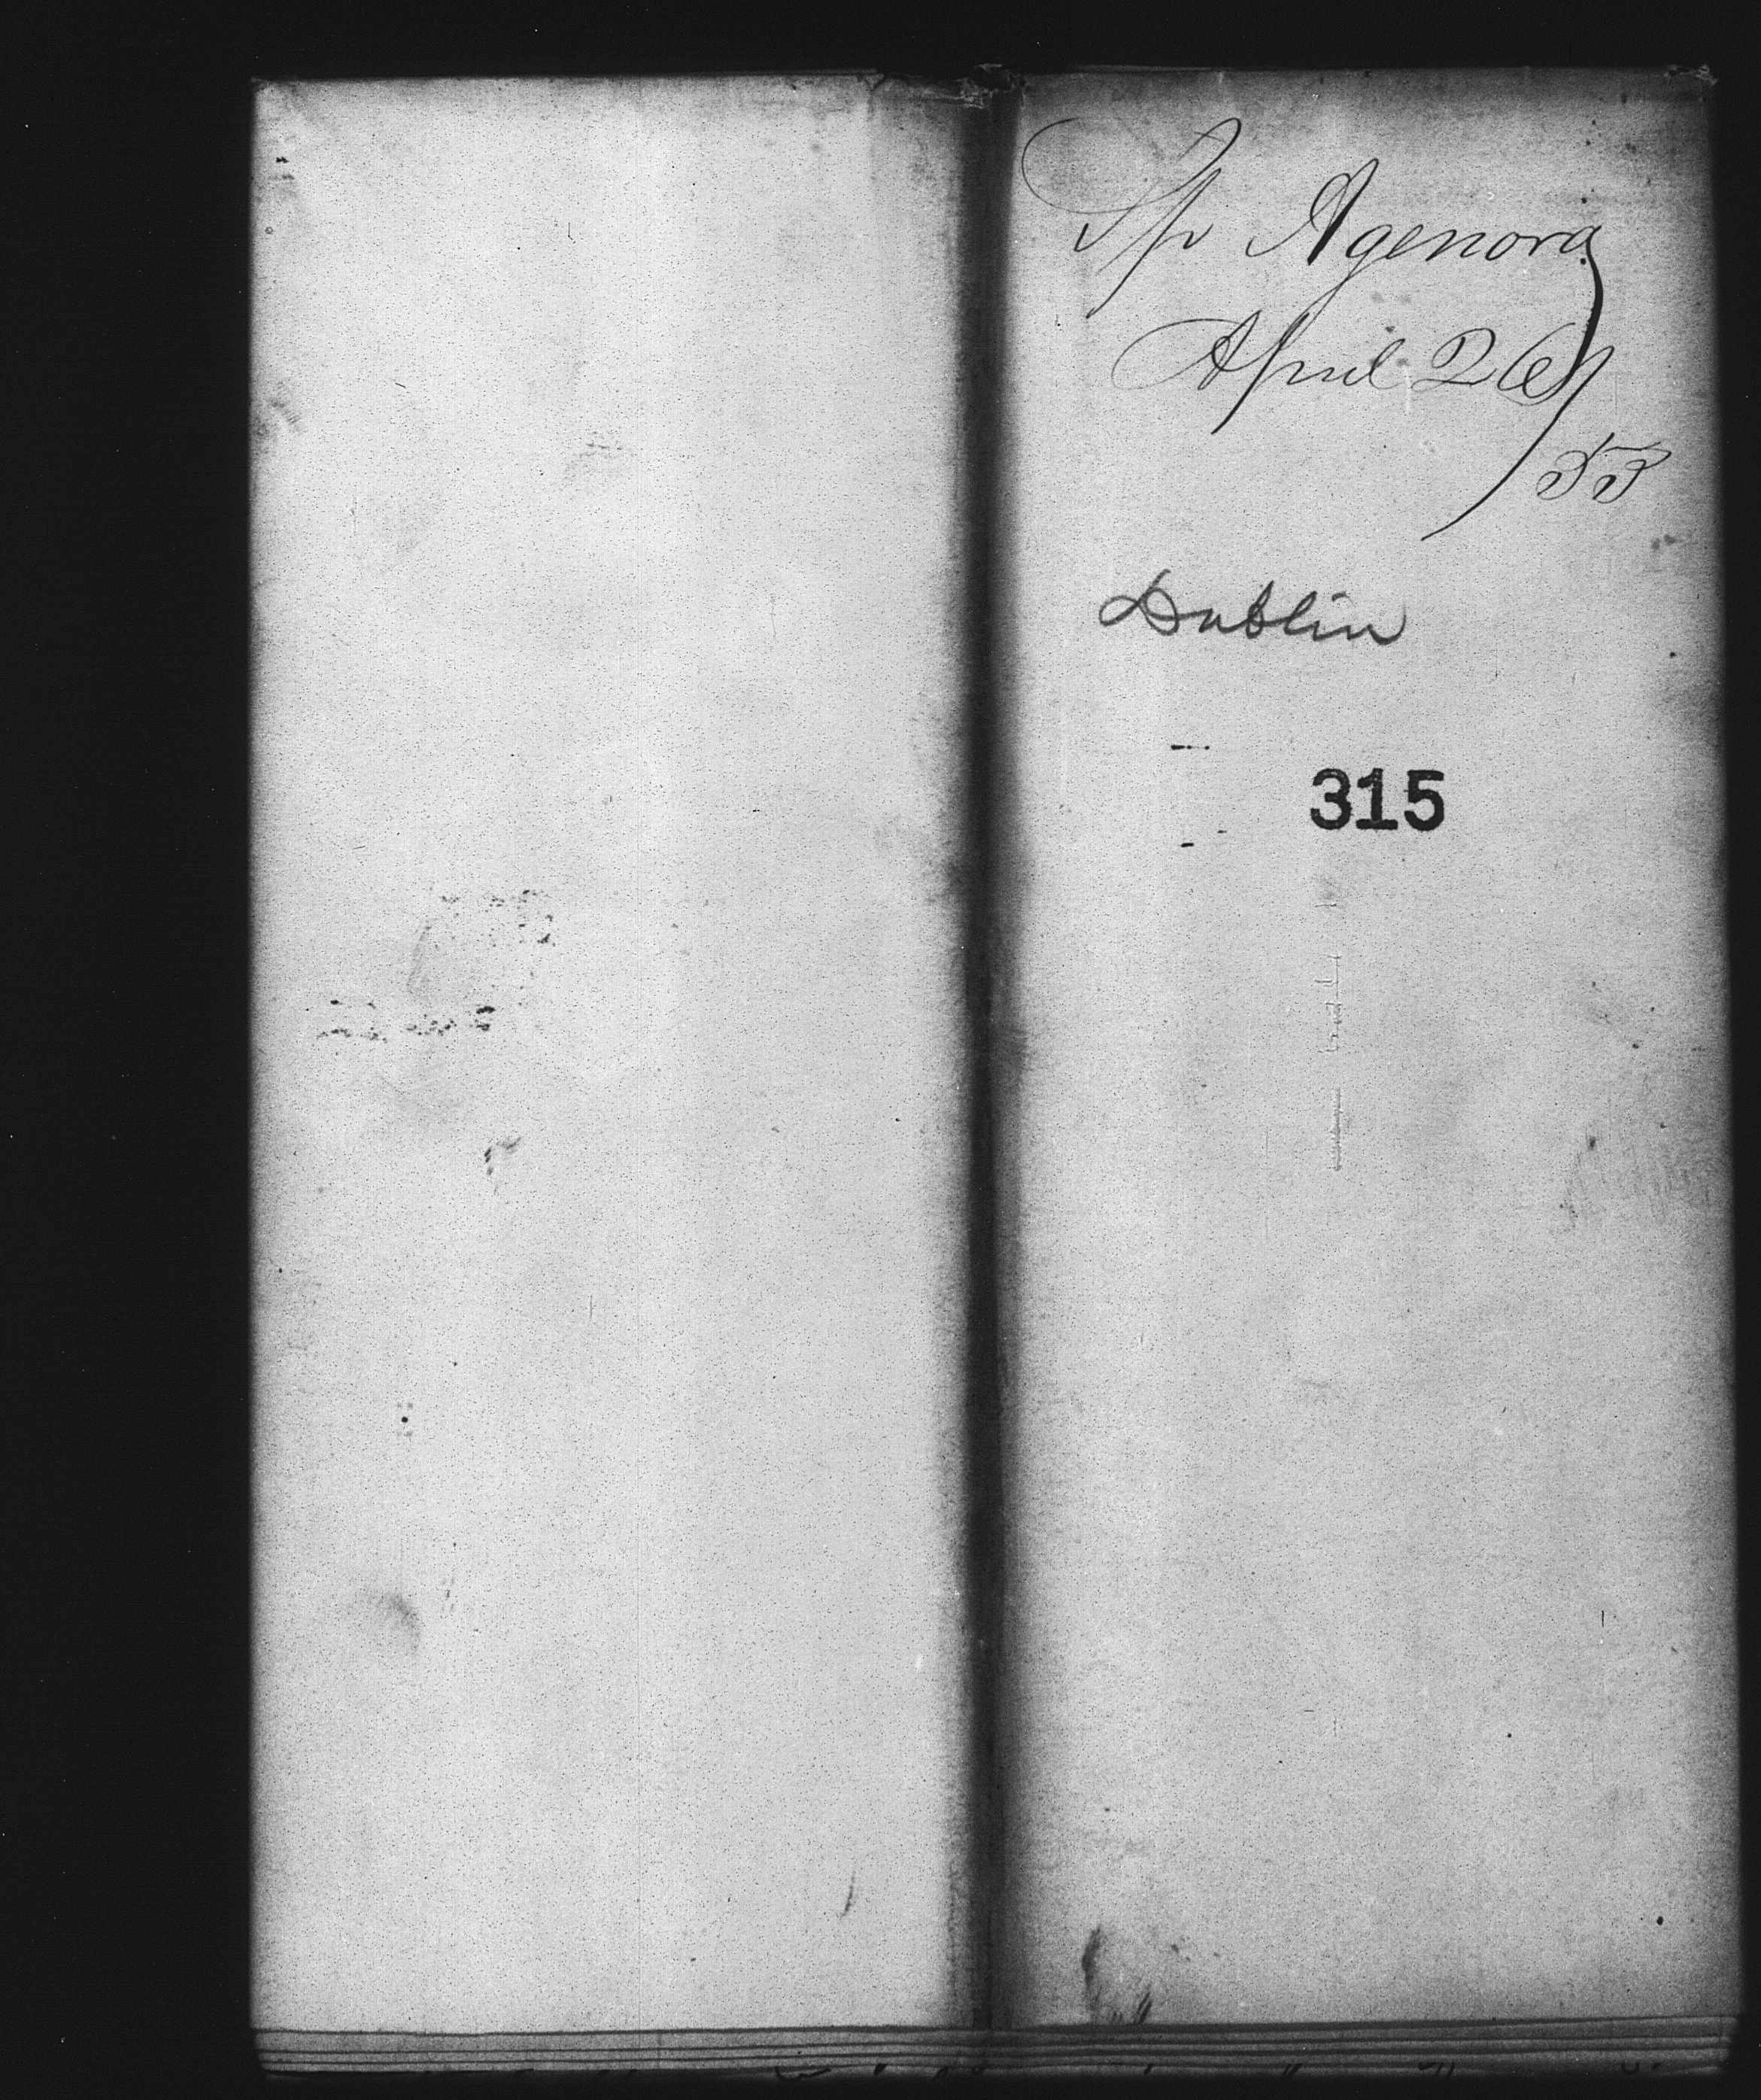 Sp Agenora
April 26/
53
Dublin
315